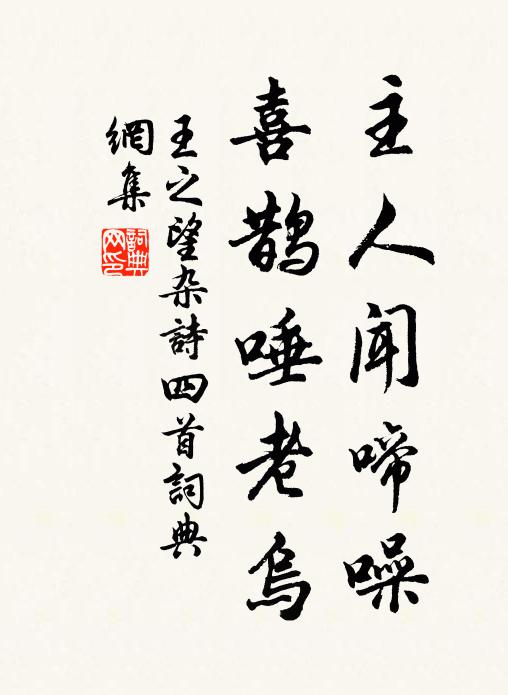 主人闻啼噪
喜鹊唾老乌
王之望杂詩四首詞典
網集
詞典
网印